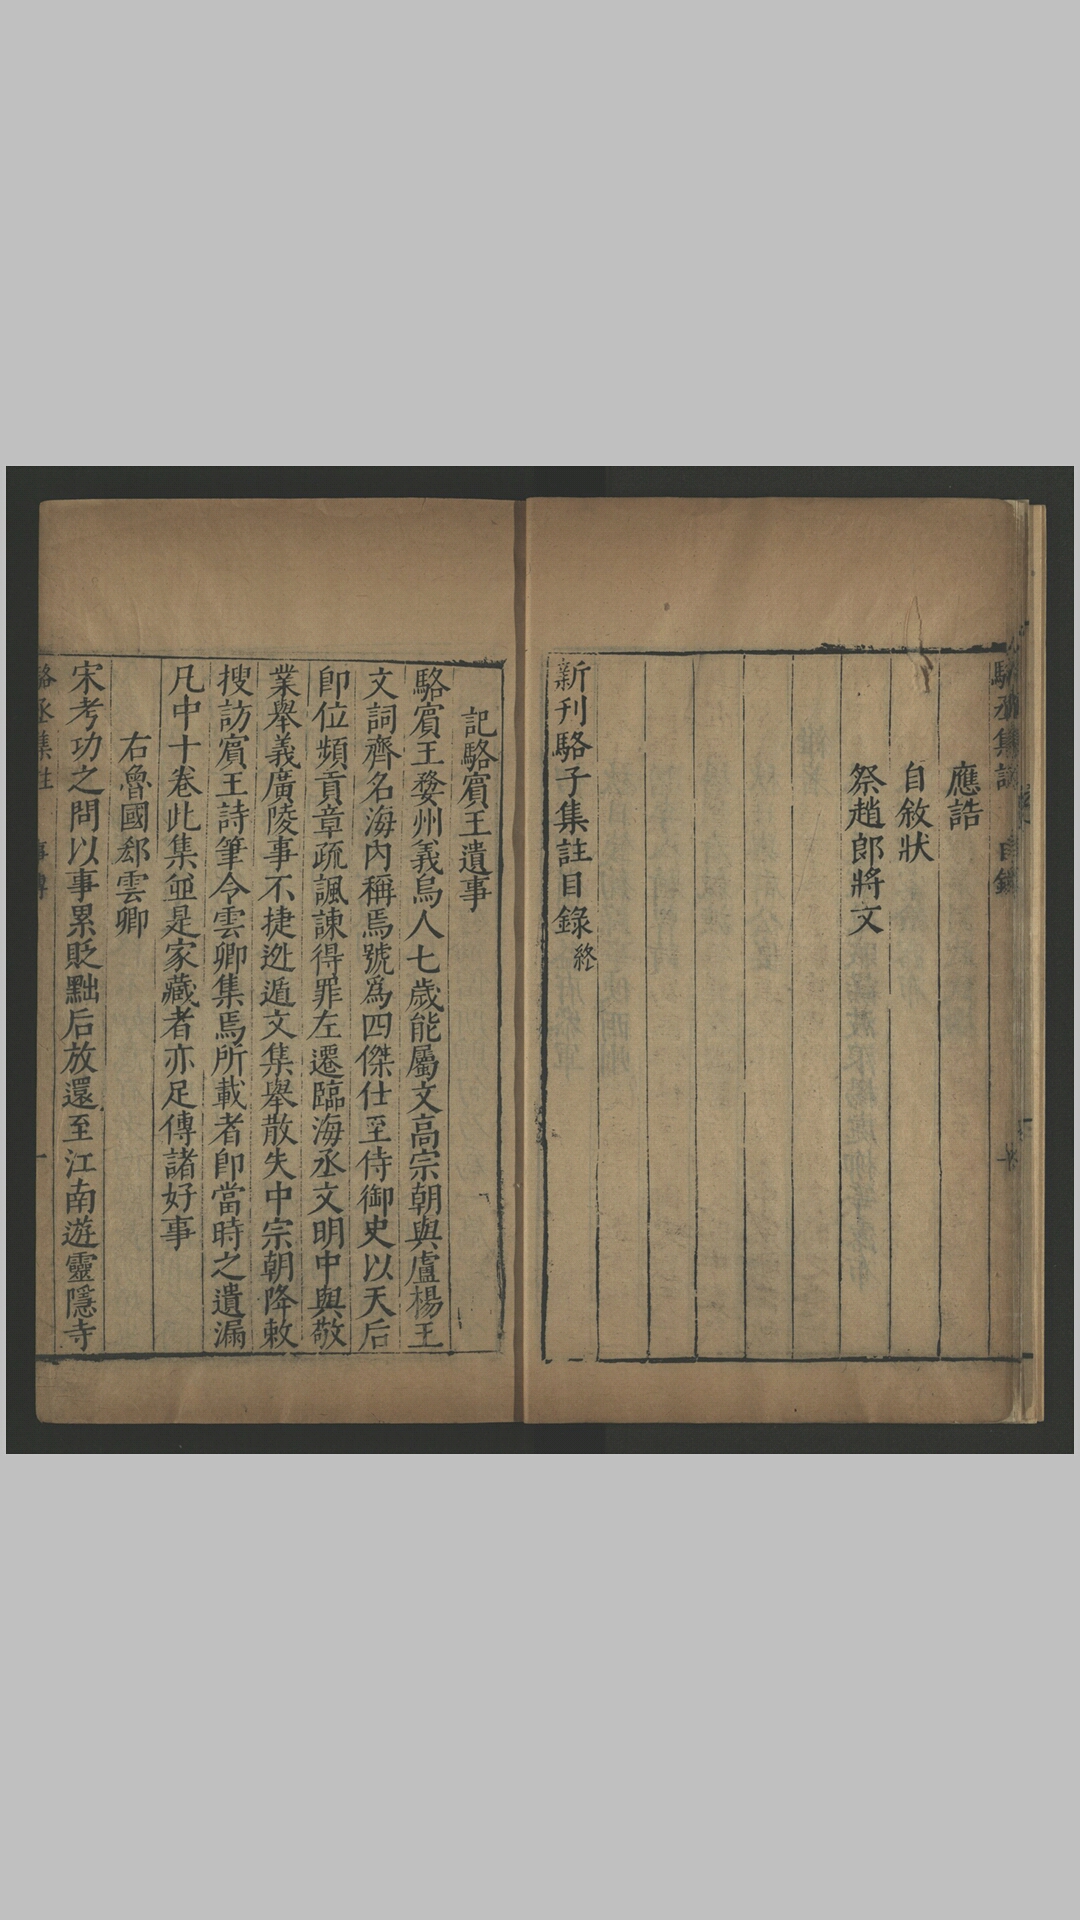 應誥
自敘狀
祭趙郎將文
新刊駱子集註目錄終
記駱賓王遺事
駱賓王婺州義烏人七歲能屬文高宗朝與盧楊王
文詞齊名海內稱焉號爲四傑仕至侍御史以天后
卽位頻貢章疏諷諫得罪左遷臨海丞文明中與敬
業舉義廣陵事不捷迯遁文集舉散失中宗朝降敕
搜訪賓王詩筆令雲卿集焉所載者卽當時之遺漏
凡中十卷此集並是家藏者亦足傳諸好事
右魯國郄雲卿
宋考功之問以事累貶黜后放還至江南遊靈隱寺